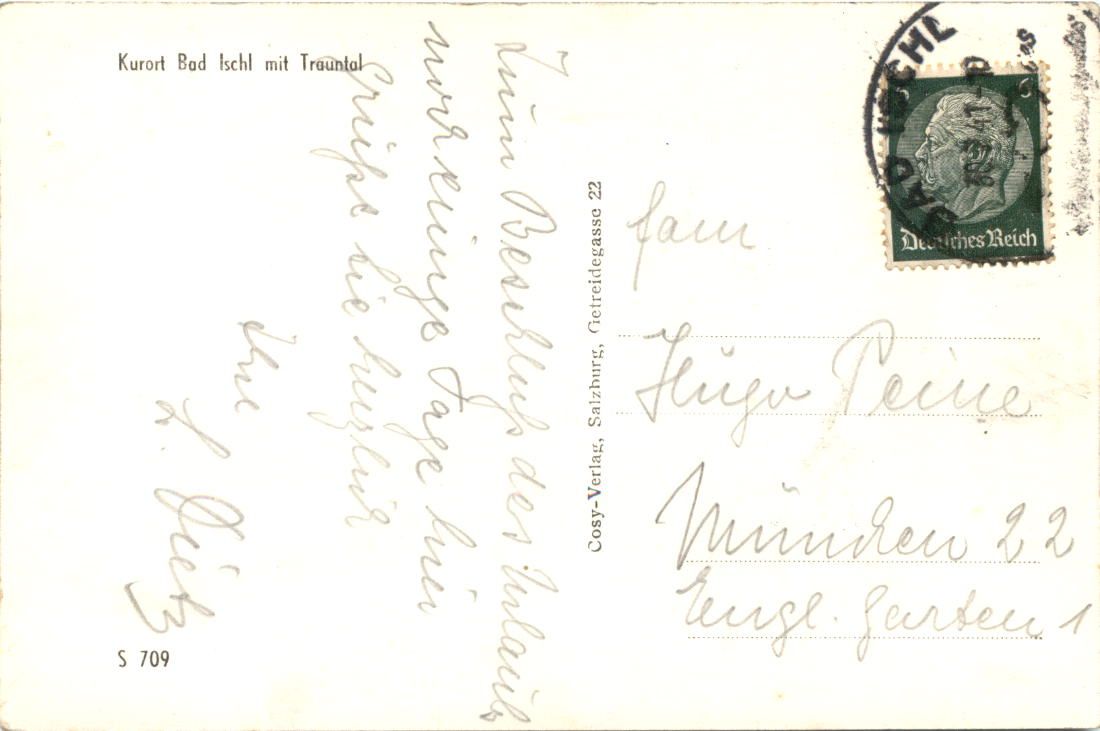 Kurort Bad Ischl mit Trauntal
Zum Beschluß des Urlaubs
noch einige Tage hier
Grüße Sie herzlich
Ihre
L. Dietz
S 709
Cosy-Verlag, Salzburg, Getreidegasse 22
BAD ISCHL
41
6
Deutsches Reich
Fam
Hugo Peine
München 22
Engl. Garten 1